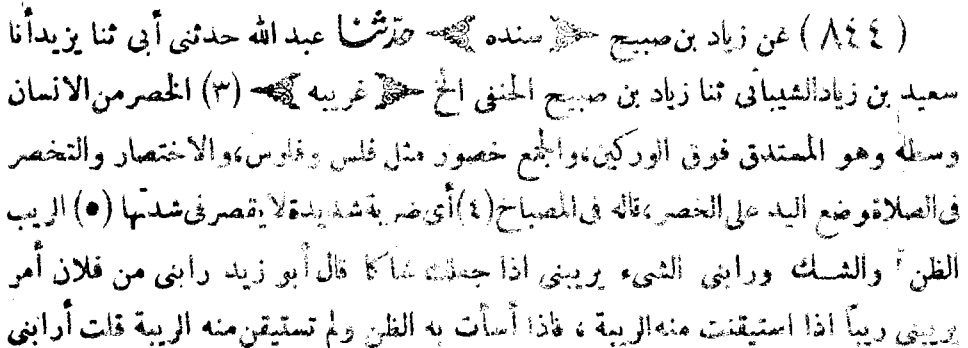 ( ٨٤٤ ) عن زياد بن صبيح ﴿ سنده ﴾ حدّثنا عبد الله حدثنى أبى ثنا يزيد أنا
سعيد بن زياد الشيبانى ثنا زياد بن صبيح الحنفى الخ ﴿ غريبه ﴾ (٣) الخصر من الانسان
وسطه وهو المستدق فوق الوركين، والجمع خصور مثل فلس وفلوس، والاختصار والتخصر
فى الصلاة وضع اليد على الخصر، قاله فى المصباح (٤) أى ضربة شديدة لا يقصر فى شدتها (٥) الريب
الظن والشك ورابنى الشىء يريبنى اذا جعلك شاكا قال أبو زيد رابنى من فلان أمر
يريبنى ريباً اذا استيقنت منه الريبة ، فاذا أسأت به الظن ولم تستيقن منه الريبة قلت أرابنى